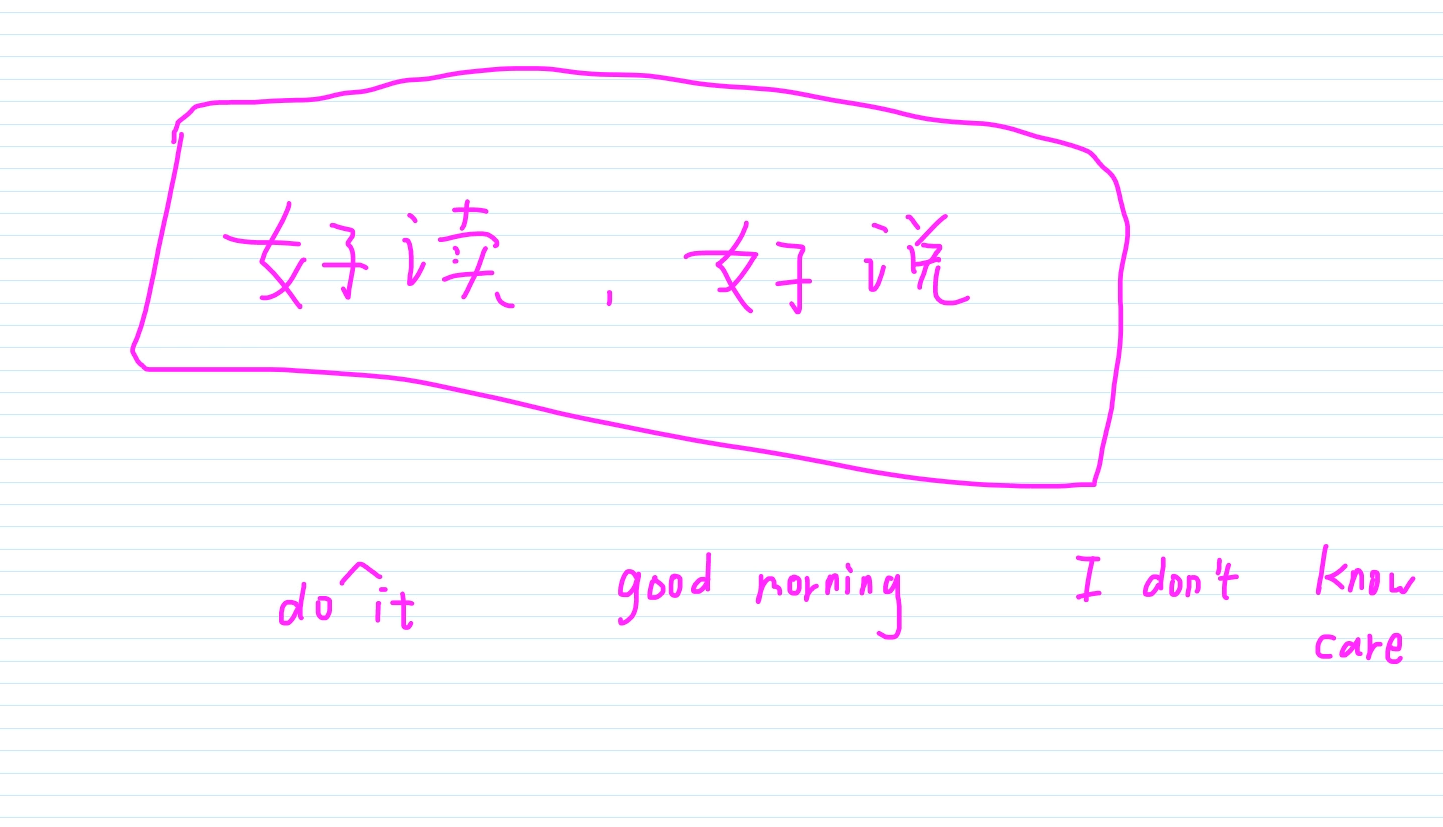 好读，好说
do^it good norning I don't know
care